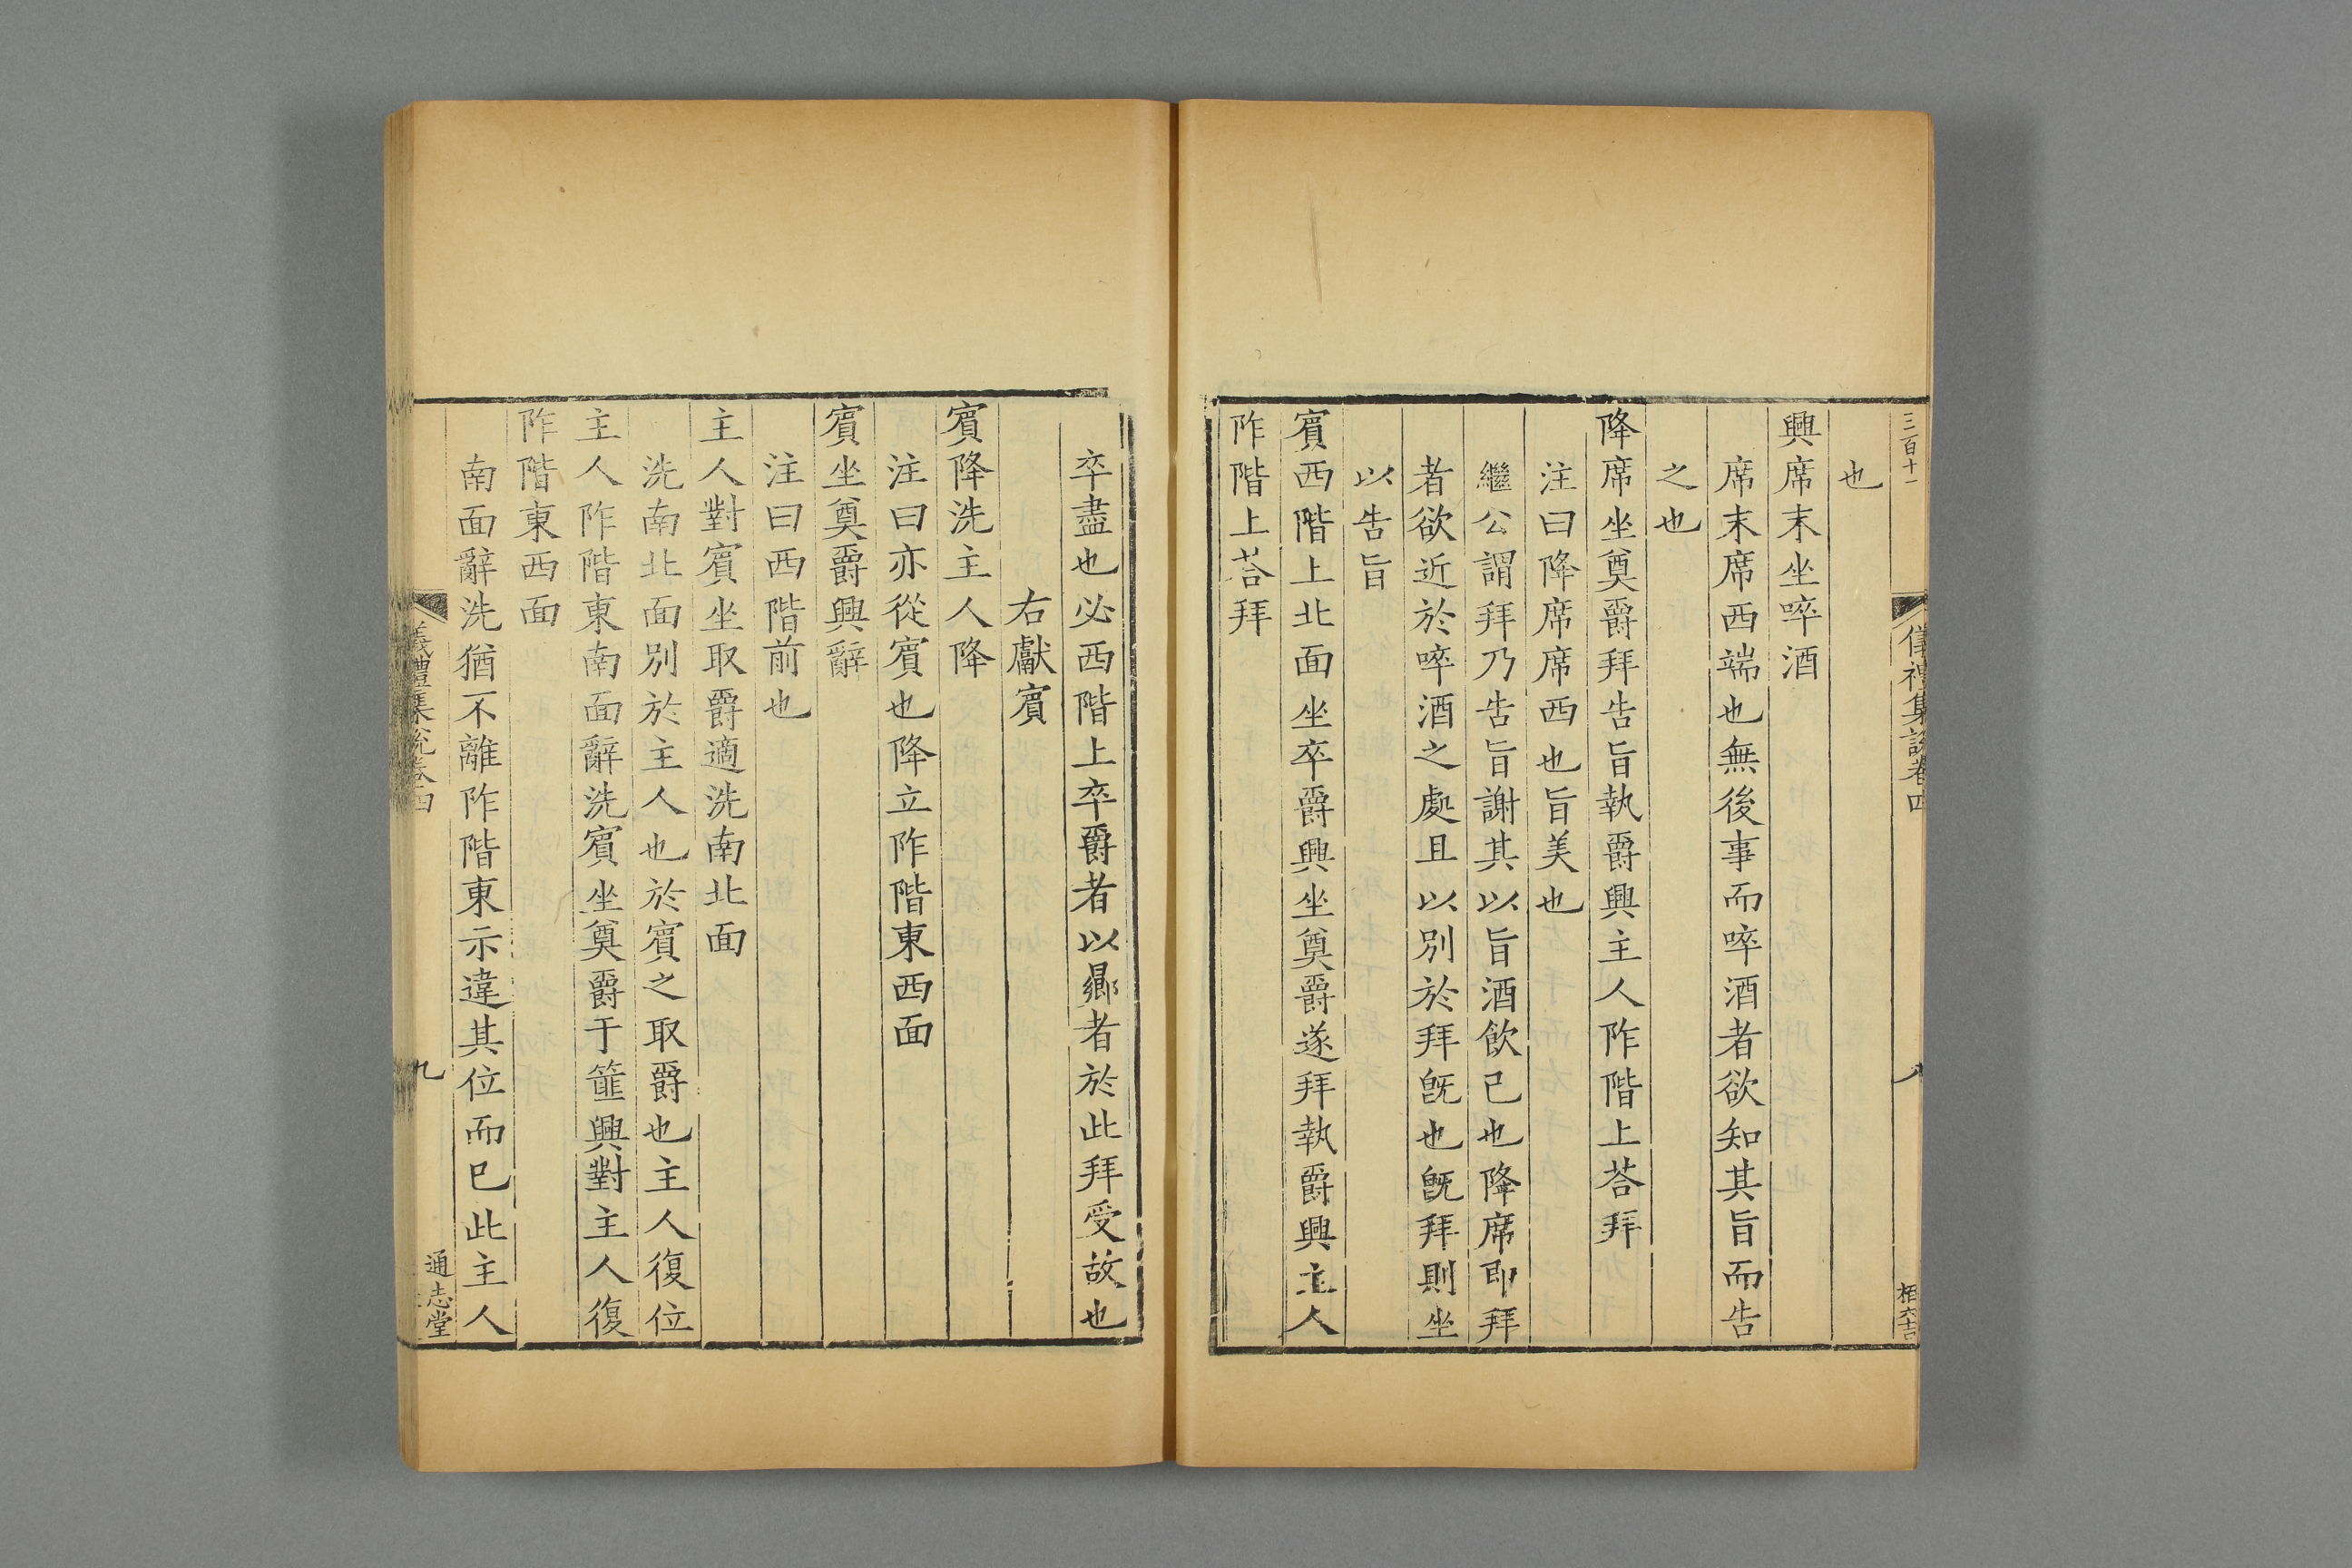 三百十一
儀禮集說卷四
八
也
興席末坐啐酒
席末席西端也無後事而啐酒者欲知其旨而告
之也
降席坐奠爵拜告旨執爵興主人阼階上荅拜
注曰降席席西也旨美也
繼公謂拜乃告旨謝其以旨酒飲己也降席即拜
者欲近於啐酒之處且以別於拜旣也旣拜則坐
以告旨
賔西階上北面坐卒爵興坐奠爵遂拜執爵興主人
阼階上荅拜
卒盡也必西階上卒爵者以鄉者於此拜受故也
右獻賔
賔降洗主人降
注曰亦從賔也降立阼階東西面
賔坐奠爵興辭
注曰西階前也
主人對賔坐取爵適洗南北面
洗南北面別於主人也於賔之取爵也主人復位
主人阼階東南面辭洗賔坐奠爵于篚興對主人復
阼階東西面
南面辭洗猶不離阼階東示違其位而已此主人
儀禮集說卷四
九
通志堂